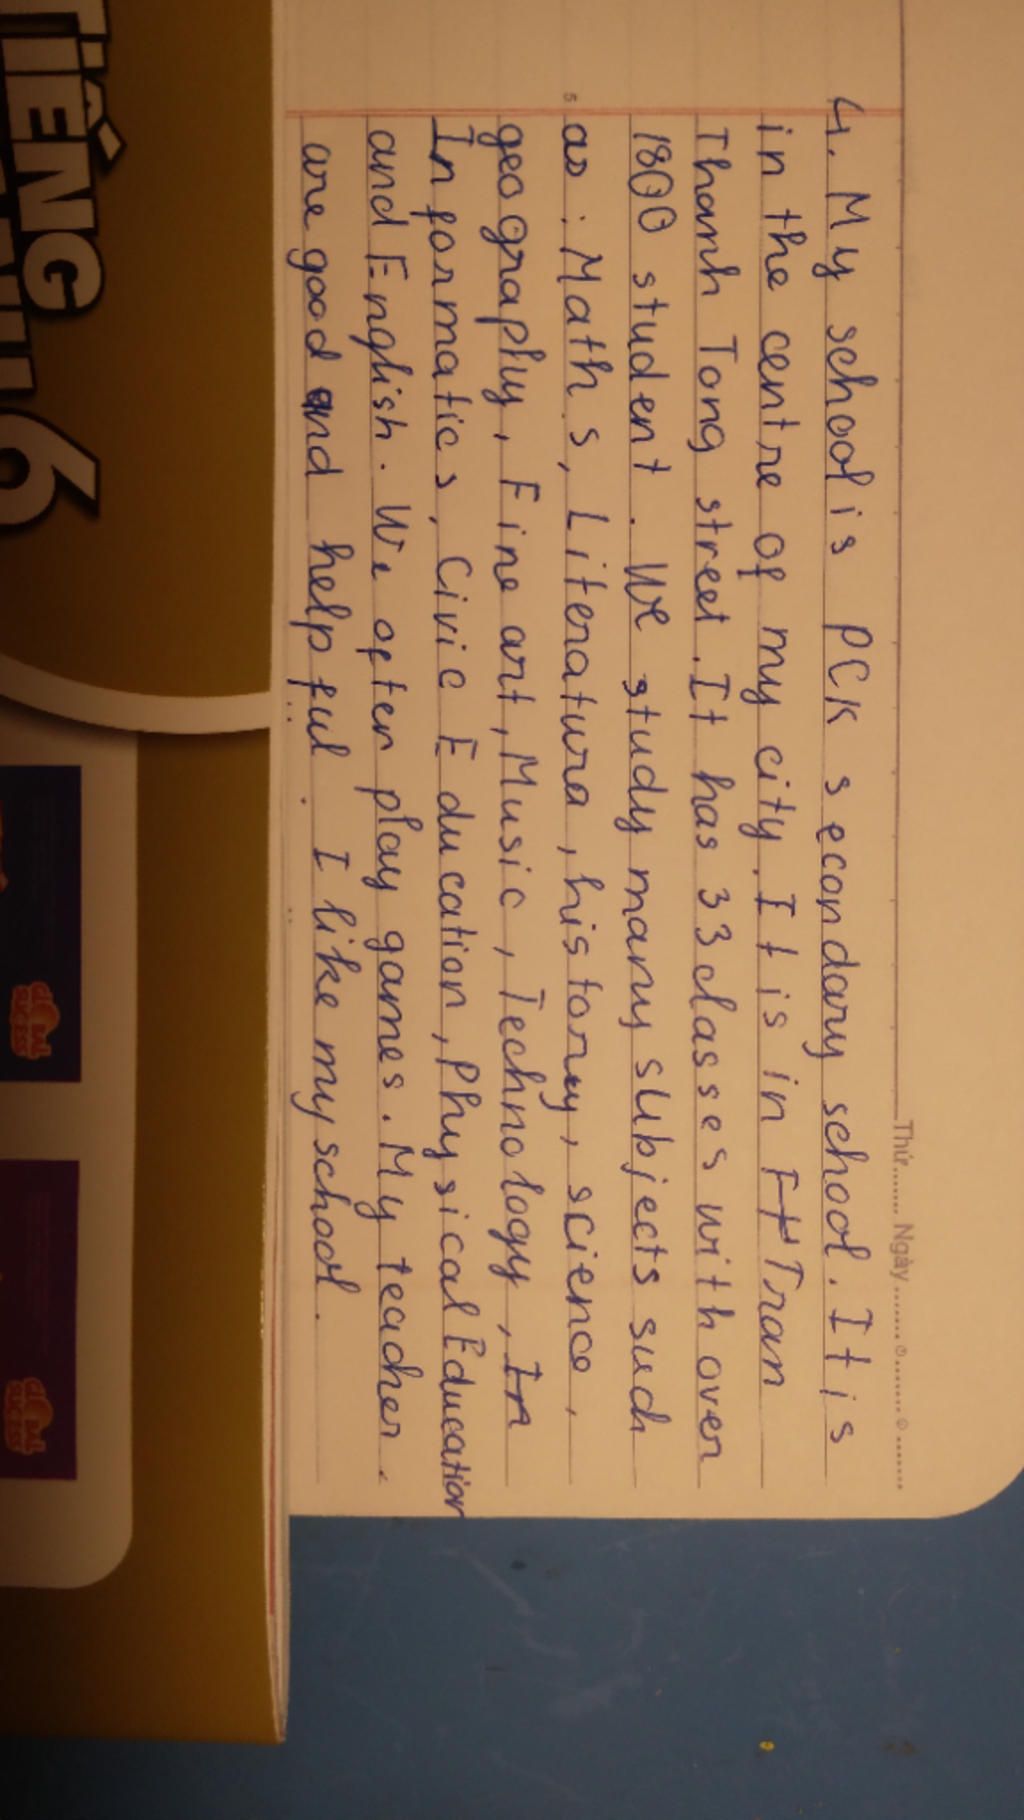 Thứ........ Ngày ........ ........ ........
4. My school is PCK secondary school. It is
in the centre of my city. It is in Tran
Thanh Tong street. It has 33 classes with over
1800 student. We study many subjects such
as : Maths, Literatura, history, science,
geography, Fine art, Music, Technology, In
Informatics, Civic Education, Physical Education
and English. We often play games. My teacher.
are good and help ful. I like my school.
5
TIẾNG
6
GLOBAL
SUCCESS
GLOBAL
SUCCESS